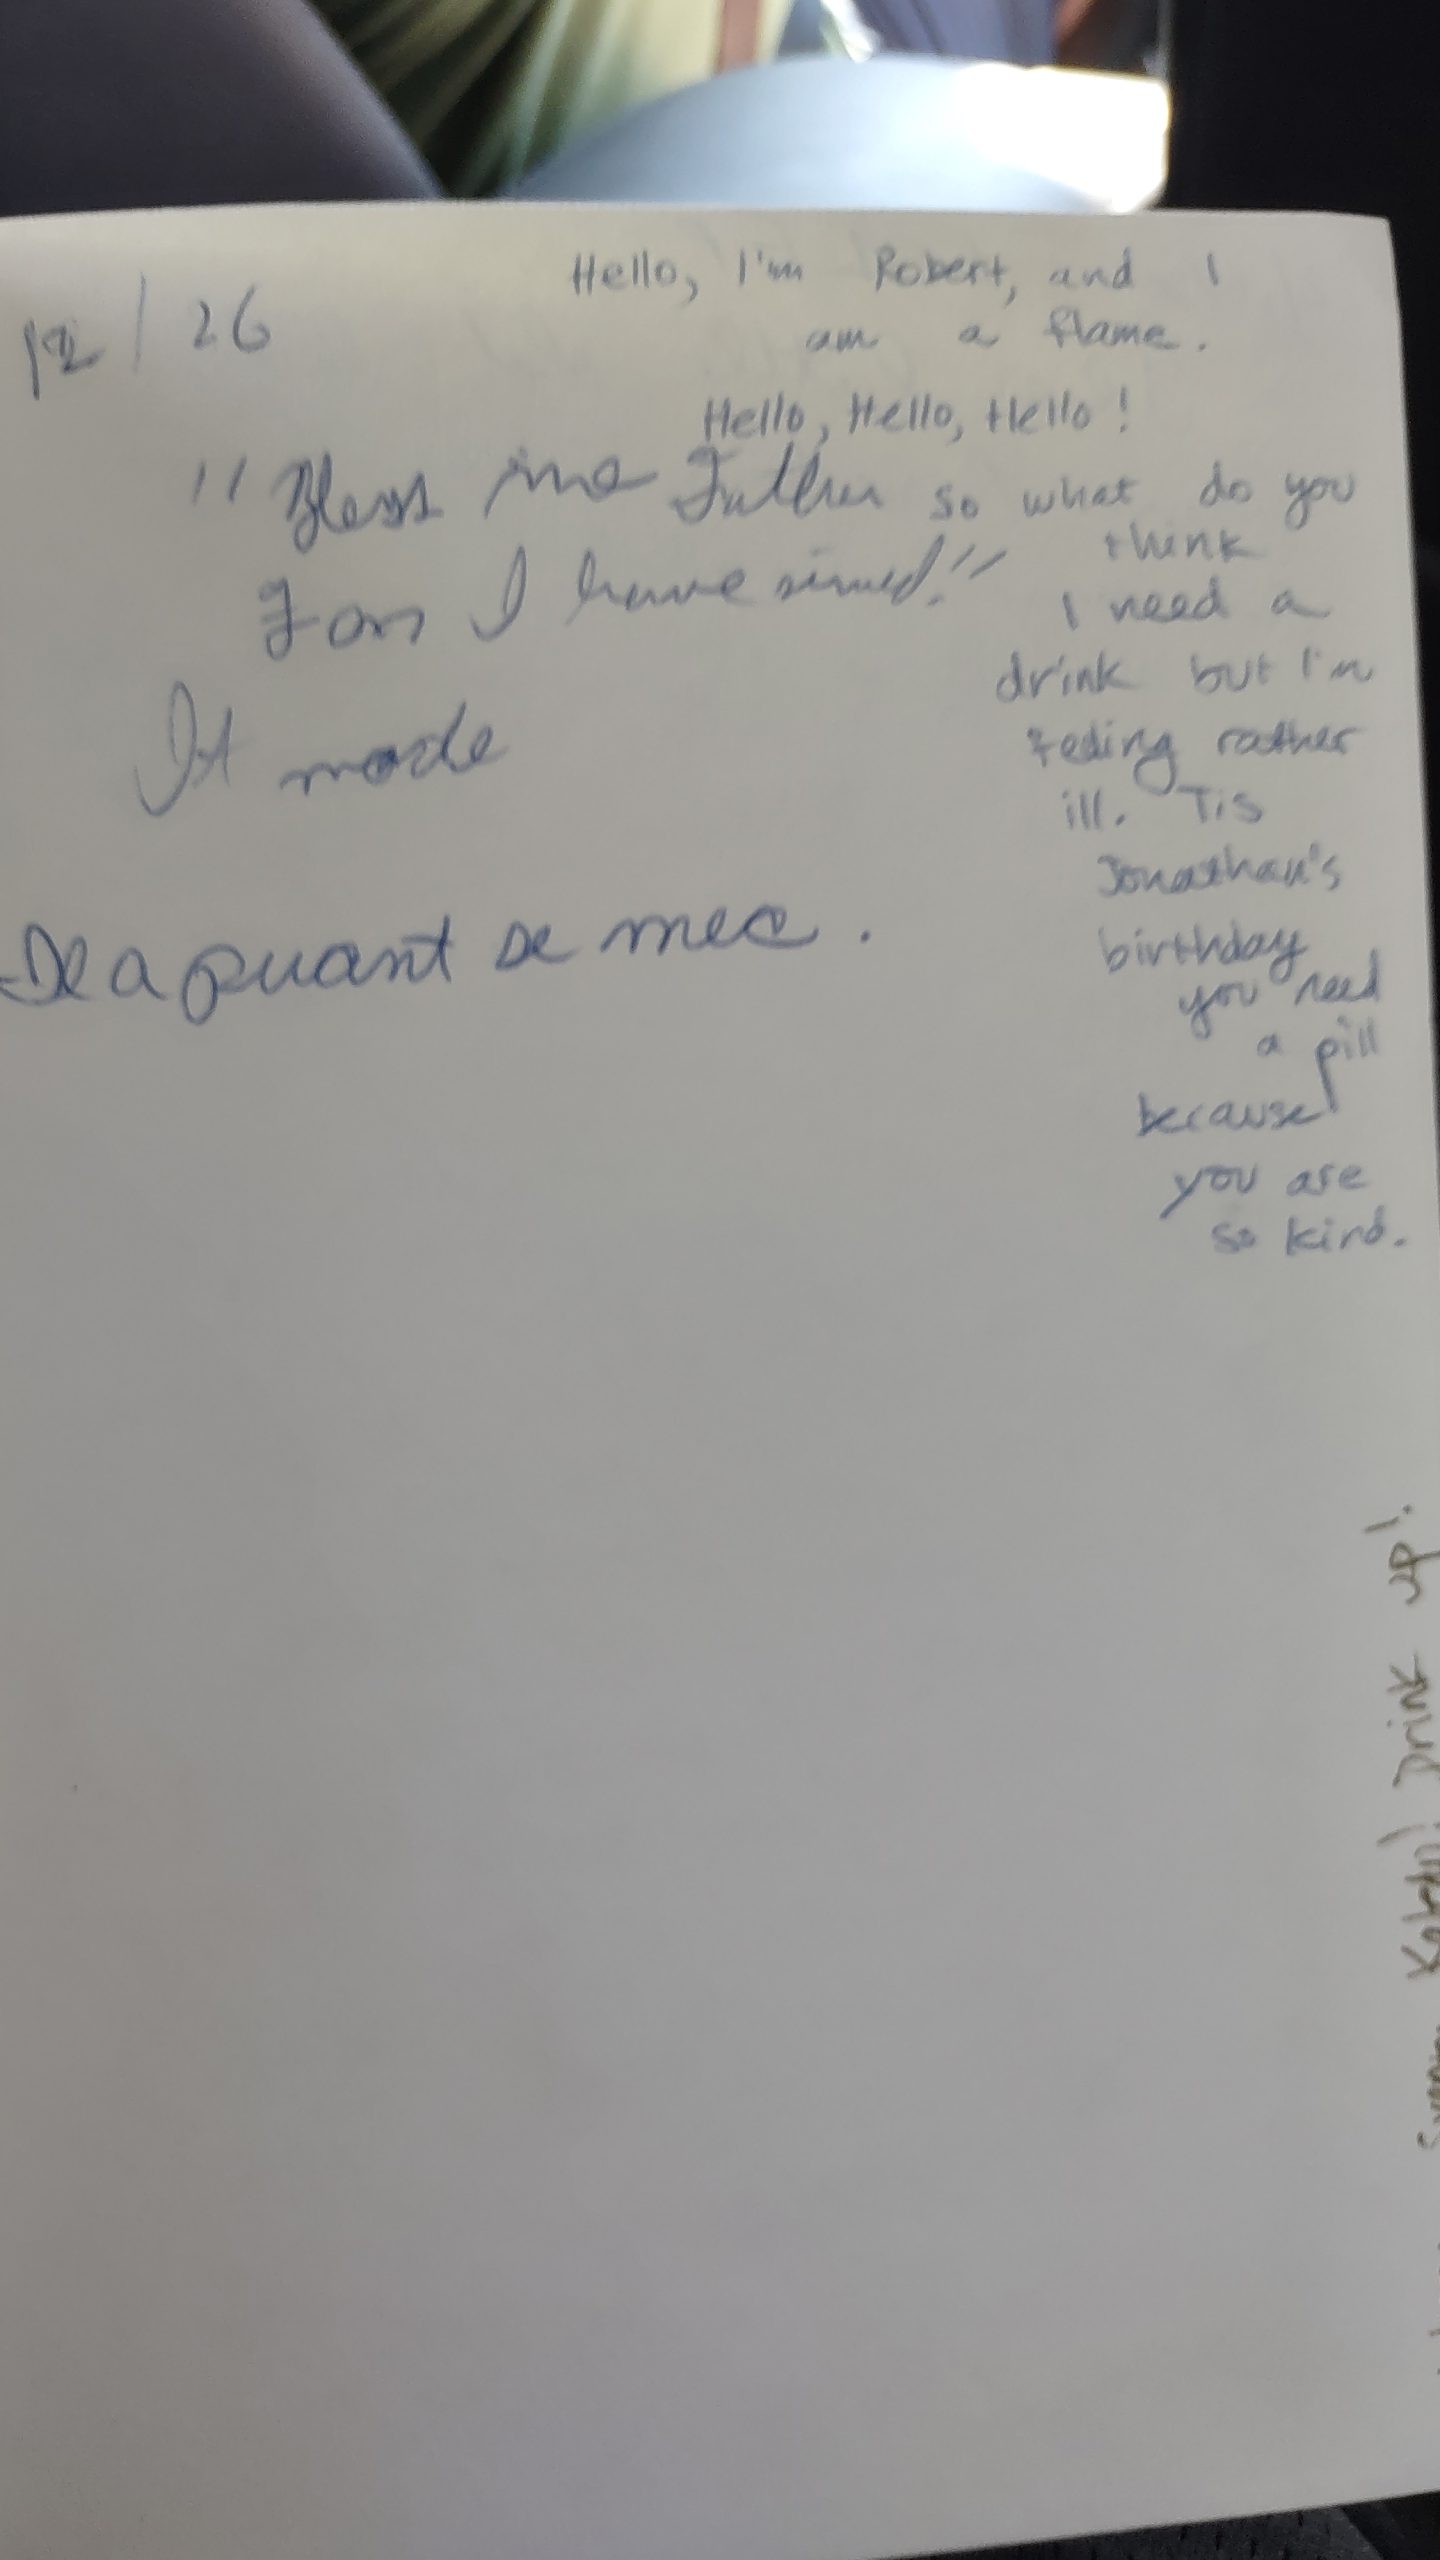 12/26
Hello, I'm Robert, and I
am a flame.
Hello, Hello, Hello!
"Bless me Father
For I have sinned."
It made
so what do you
think
I need a
drink but I'm
feeling rather
ill. Tis
Jonathan's
birthday
you need
a pill
because
you are
so kind.
Drink up!